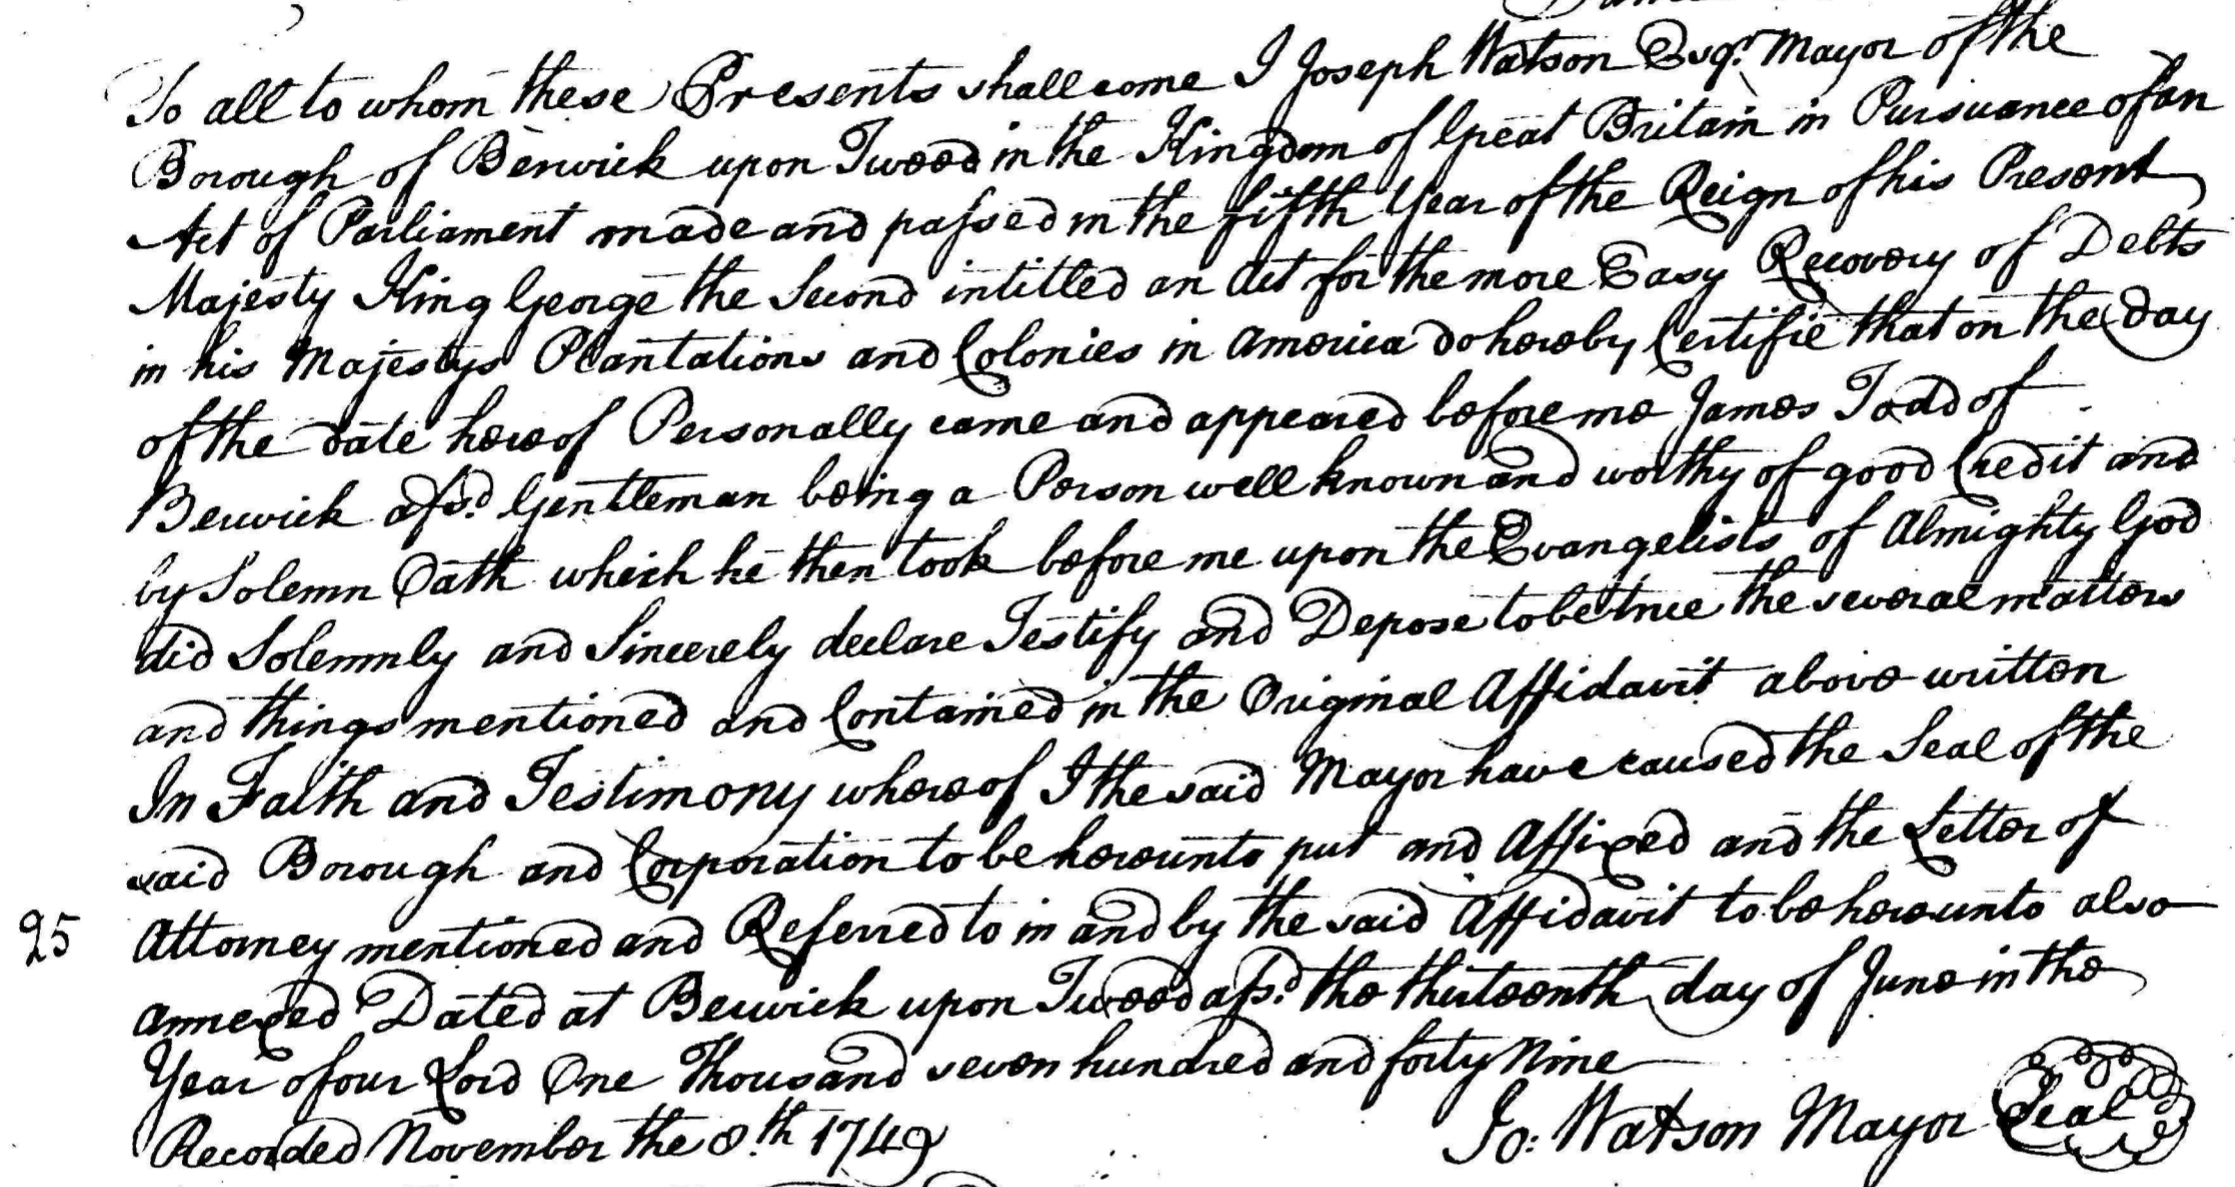 To all to whom these Presents shall come I Joseph Watson Esqr. Mayor of the
Borough of Berwick upon Tweed in the Kingdom of Great Britain in Pursuance of an
Act of Parliament made and passed in the fifth Year of the Reign of his Present
Majesty King George the Second intitled an Act for the more Easy Recovery of Debts
in his Majestys Plantations and Colonies in America do hereby Certifie that on the Day
of the date hereof Personally came and appeared before me James Todd of
Berwick afsd. Gentleman being a Person well known and worthy of good Credit and
by Solemn Oath which he then took before me upon the Evangelists of Almighty God
did Solemnly and Sincerely declare Testify and Depose to be true the several matters
and things mentioned and Contained in the Original Affidavit above written
In Faith and Testimony whereof I the said Mayor have caused the Seal of the
said Borough and Corporation to be hereunto put and Affixed and the Letter of
25 Attorney mentioned and Referred to in and by the said Affidavit to be hereunto also
annexed Dated at Berwick upon Tweed afsd. the thirteenth day of June in the
Year of our Lord One Thousand seven hundred and forty Nine
Jo: Watson Mayor Seal
Recorded November the 8th. 1749